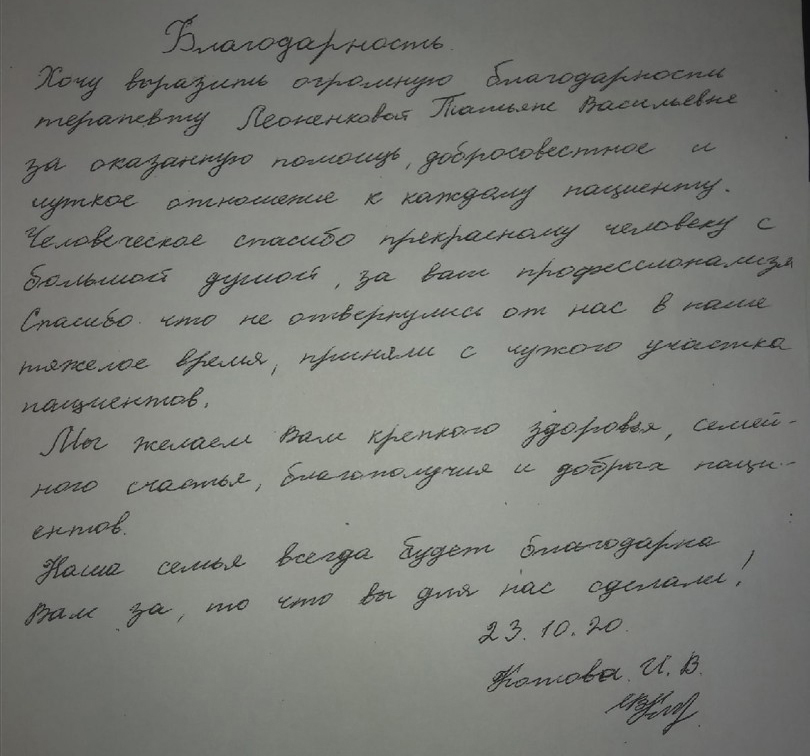 Благодарность.
Хочу выразить огромную благодарность
терапевту Леоненковой Татьяне Васильевне
за оказанную помощь, добросовестное и
чуткое отношение к каждому пациенту.
Человеческое спасибо прекрасному человеку с
большой душой, за ваш профессионализм
Спасибо что не отвернулись от нас в наше
тяжелое время, приняли с чужого участка
пациентов.
Мы желаем Вам крепкого здоровья, семей-
ного счастья, благополучия и добрых паци-
ентов.
Наша семья всегда будет благодарна
Вам за, то что вы для нас сделали!
23.10.20.
Котова И.В.